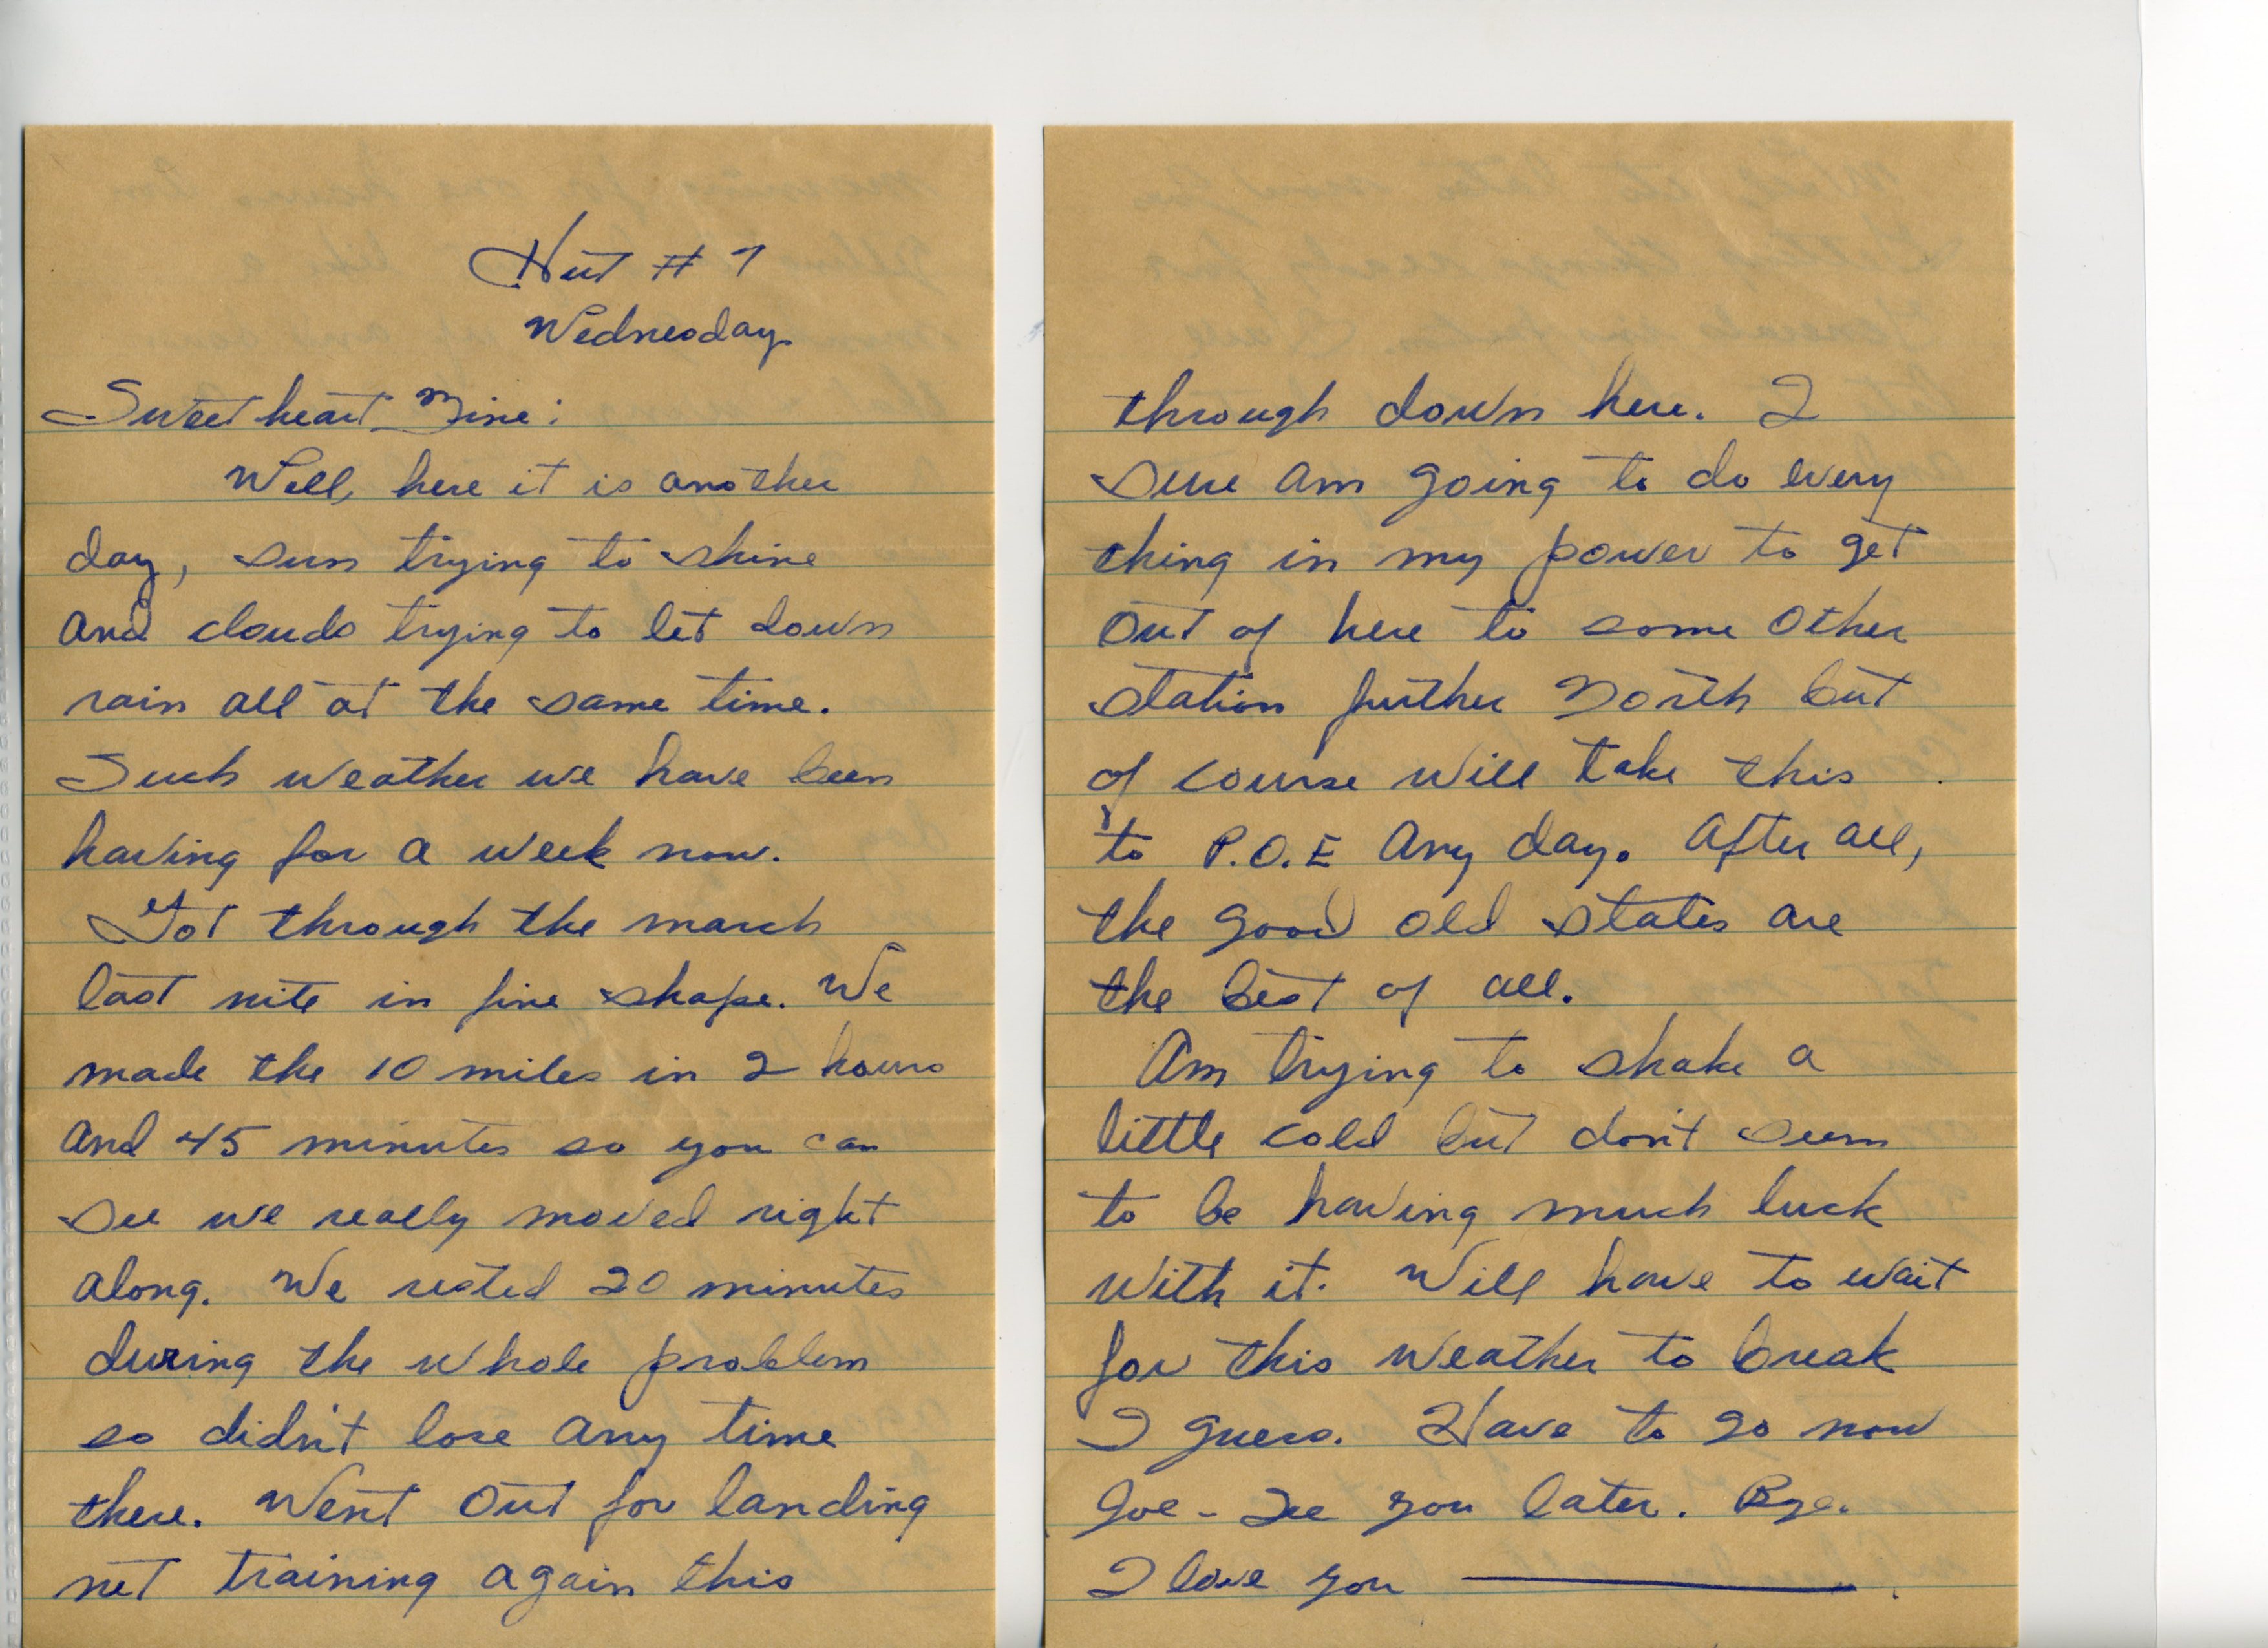 Hut # 7
Wednesday
Sweetheart Mine:
Well, here it is another
day, sun trying to shine
and clouds trying to let down
rain all at the same time.
Such weather we have been
having for a week now.
Got through the march
last nite in fine shape. We
made the 10 miles in 2 hours
and 45 minutes so you can
see we really moved right
along. We rested 20 minutes
during the whole problem
so didn't lose any time
there. Went out for landing
net training again this
through down here. I
sure am going to do every
thing in my power to get
out of here to some other
station further North but
of course will take this
to P.O.E any day. After all,
the good old states are
the best of all.
Am trying to shake a
little cold but don't seem
to be having much luck
with it. Will have to wait
for this weather to break
I guess. Have to go now
Joe - See you later. Bye.
I love you